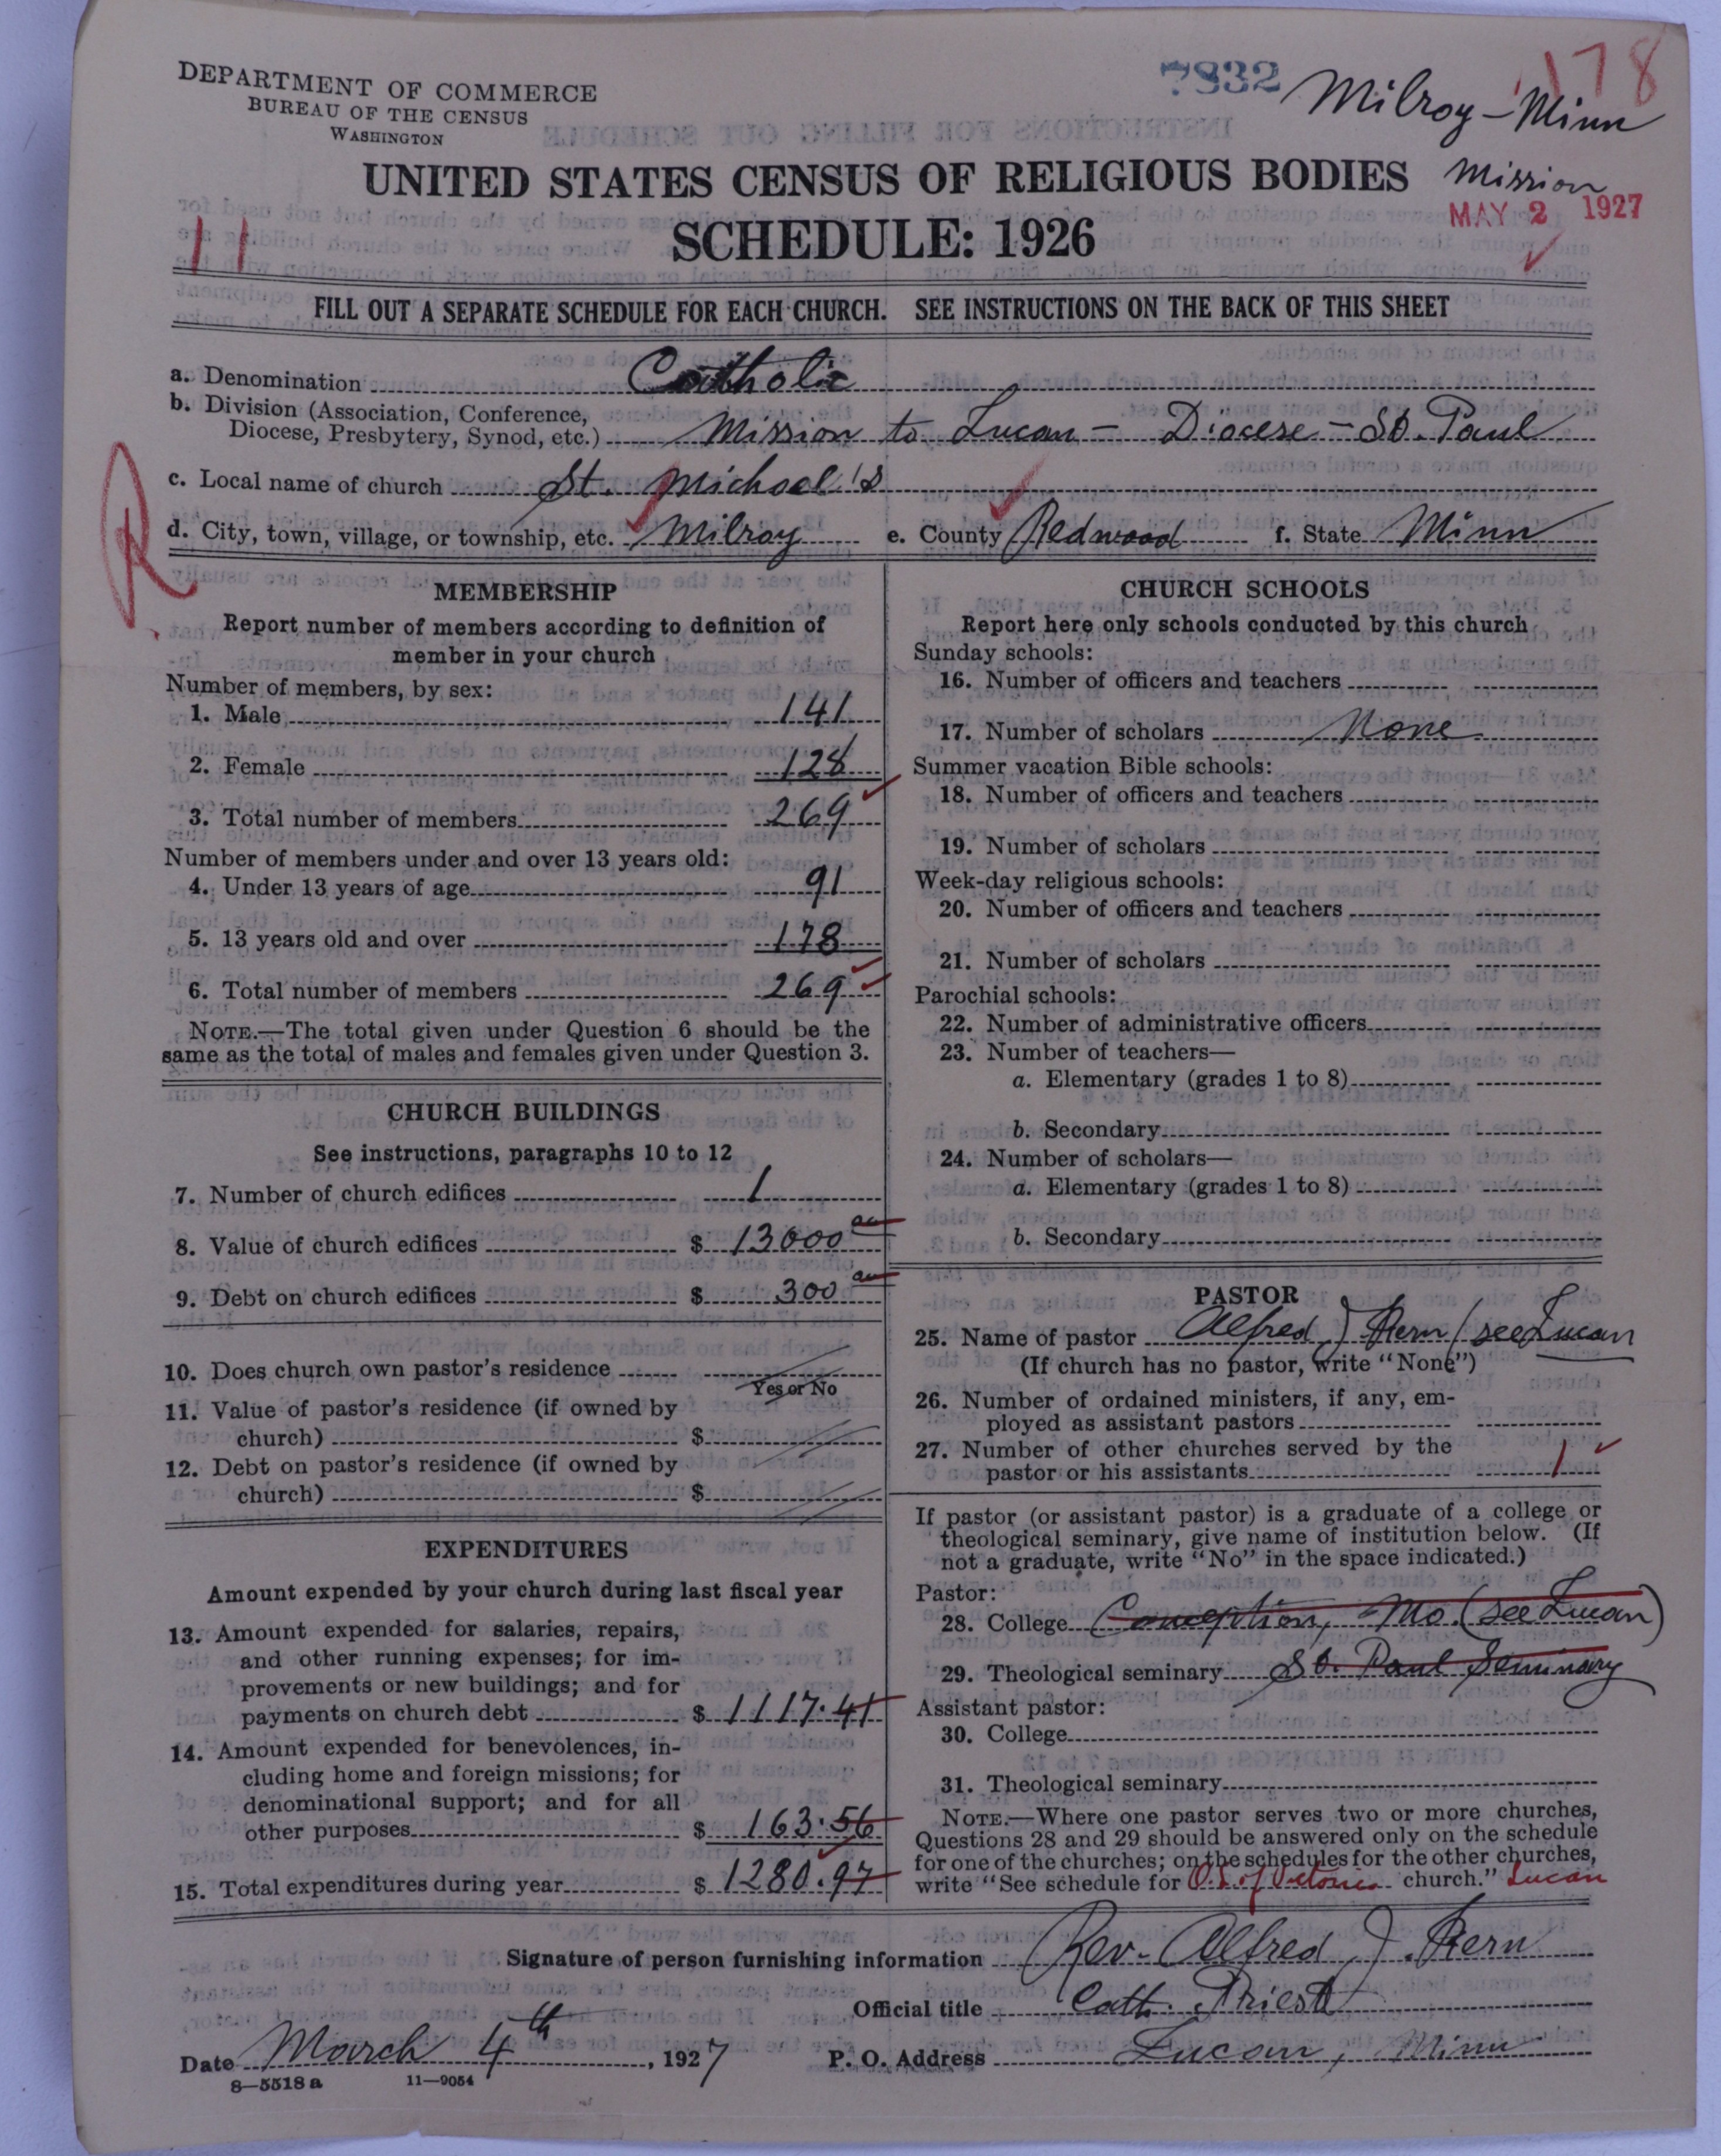 DEPARTMENT OF COMMERCE
BUREAU OF THE CENSUS
WASHINGTON
7832
178
Milroy - Minn
Mission
MAY 2 1927
UNITED STATES CENSUS OF RELIGIOUS BODIES
SCHEDULE: 1926
11
FILL OUT A SEPARATE SCHEDULE FOR EACH CHURCH. SEE INSTRUCTIONS ON THE BACK OF THIS SHEET
a. Denomination Catholic
b. Division (Association, Conference,
Diocese, Presbytery, Synod, etc.) Mission to Lucan - Diocese - St. Paul
c. Local name of church St. Michael's
R
d. City, town, village, or township, etc. Milroy e. County Redwood f. State Minn
MEMBERSHIP
Report number of members according to definition of
member in your church
Number of members, by sex:
1. Male 141
2. Female 128
3. Total number of members 269
Number of members under and over 13 years old:
4. Under 13 years of age 91
5. 13 years old and over 178
6. Total number of members 269
NOTE.—The total given under Question 6 should be the
same as the total of males and females given under Question 3.
CHURCH BUILDINGS
See instructions, paragraphs 10 to 12
7. Number of church edifices 1
8. Value of church edifices $ 13000
9. Debt on church edifices $ 300
10. Does church own pastor's residence
Yes or No
11. Value of pastor's residence (if owned by
church) $
12. Debt on pastor's residence (if owned by
church) $
EXPENDITURES
Amount expended by your church during last fiscal year
13. Amount expended for salaries, repairs,
and other running expenses; for im-
provements or new buildings; and for
payments on church debt $ 1117.41
14. Amount expended for benevolences, in-
cluding home and foreign missions; for
denominational support; and for all
other purposes $ 163.56
15. Total expenditures during year $ 1280.97
CHURCH SCHOOLS
Report here only schools conducted by this church
Sunday schools:
16. Number of officers and teachers
17. Number of scholars None
Summer vacation Bible schools:
18. Number of officers and teachers
19. Number of scholars
Week-day religious schools:
20. Number of officers and teachers
21. Number of scholars
Parochial schools:
22. Number of administrative officers
23. Number of teachers—
a. Elementary (grades 1 to 8)
b. Secondary
24. Number of scholars—
a. Elementary (grades 1 to 8)
b. Secondary
PASTOR
25. Name of pastor Alfred J Kern (see Lucan
(If church has no pastor, write "None")
26. Number of ordained ministers, if any, em-
ployed as assistant pastors
27. Number of other churches served by the
pastor or his assistants 1
If pastor (or assistant pastor) is a graduate of a college or
theological seminary, give name of institution below. (If
not a graduate, write "No" in the space indicated.)
Pastor:
28. College Conception, Mo. (see Lucan)
29. Theological seminary St. Paul Seminary
Assistant pastor:
30. College
31. Theological seminary
NOTE.—Where one pastor serves two or more churches,
Questions 28 and 29 should be answered only on the schedule
for one of the churches; on the schedules for the other churches,
write "See schedule for O.L. of Victories church." Lucan
Signature of person furnishing information Rev. Alfred J. Kern
Official title Cath. Priest
Date March 4th, 1927 P. O. Address Lucan, Minn
8—5518 a 11—9054